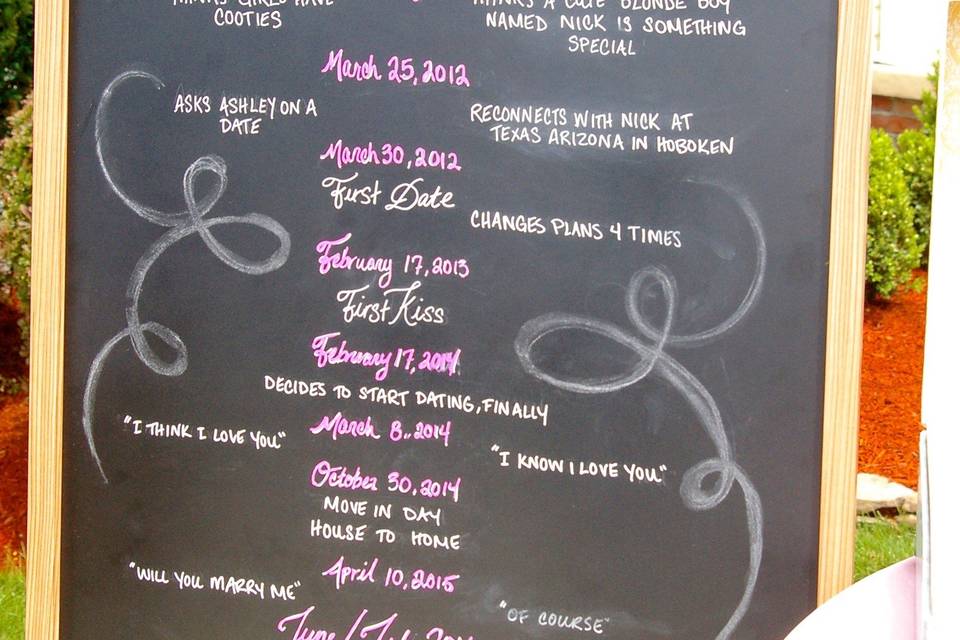 THINKS GIRLS HAVE
COOTIES
THINKS A CUTE BLONDE BOY
NAMED NICK IS SOMETHING
SPECIAL
March 25, 2012
ASKS ASHLEY ON A
DATE
RECONNECTS WITH NICK AT
TEXAS ARIZONA IN HOBOKEN
March 30, 2012
First Date
CHANGES PLANS 4 TIMES
February 17, 2013
First Kiss
February 17, 2014
DECIDES TO START DATING, FINALLY
March 8, 2014
"I THINK I LOVE YOU"
"I KNOW I LOVE YOU"
October 30, 2014
MOVE IN DAY
HOUSE TO HOME
April 10, 2015
"WILL YOU MARRY ME"
"OF COURSE"